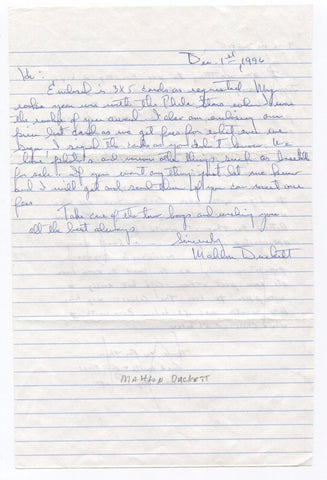 Dec. 1st, 1996
Hi:
Enclosed is 3x5 cards as requested. My
rookie year was with the Phila Stars where I won
the rookie of year award. I also am enclosing our
price list as we get fees for what we
sign. I signed the cards as you didn't know. We
have photos and various other things such as baseballs
for sale. If you want anything just let me know
and I will get and send them if you can meet our
fees
Take care of the two boys and wishing you
all the best always.
Sincerely
Mahlon Duckett
MAHLON DUCKETT